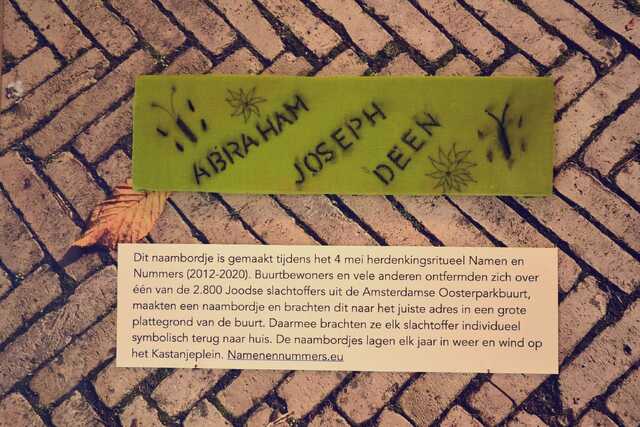 ABRAHAM
JOSEPH
DEEN
Dit naambordje is gemaakt tijdens het 4 mei herdenkingsritueel Namen en
Nummers (2012-2020). Buurtbewoners en vele anderen ontfermden zich over
één van de 2.800 Joodse slachtoffers uit de Amsterdamse Oosterparkbuurt,
maakten een naambordje en brachten dit naar het juiste adres in een grote
plattegrond van de buurt. Daarmee brachten ze elk slachtoffer individueel
symbolisch terug naar huis. De naambordjes lagen elk jaar in weer en wind op
het Kastanjeplein. Namenennummers.eu